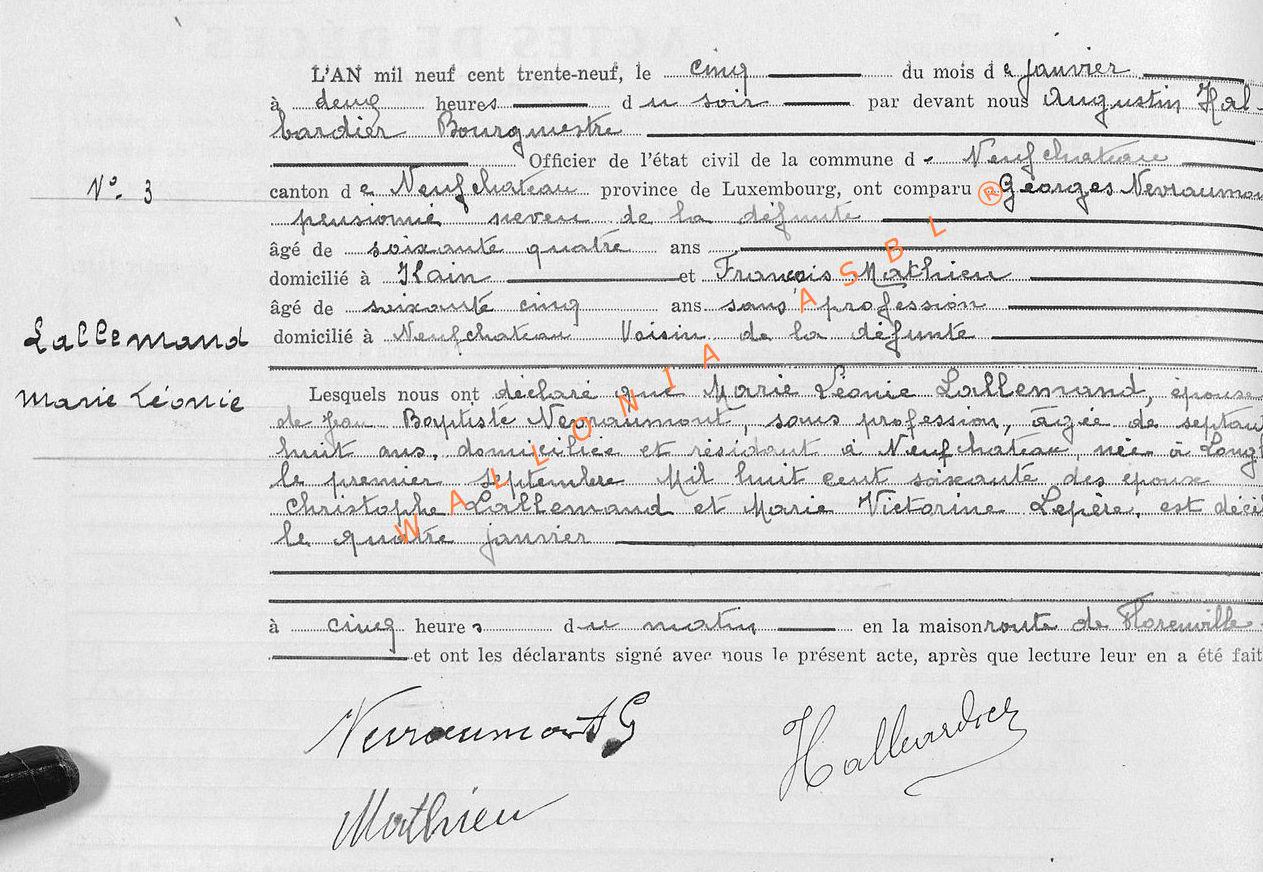 L'AN mil neuf cent trente-neuf, le cinq du mois de janvier
à deux heures du soir par devant nous Augustin Hal-
bardier Bourgmestre
Officier de l'état civil de la commune de Neufchateau
N° 3
canton de Neufchateau province de Luxembourg, ont comparu Georges Nevraumon
pensionné neveu de la défunte
âgé de soixante quatre ans
domicilié à Ilain et François Mathieu
âgé de soixante cinq ans sans profession
Lallemand
domicilié à Neufchateau Voisin de la défunte
Marie Léonie
Lesquels nous ont déclaré que Marie Léonie Lallemand, épouse
de Jean Baptiste Nevraumont, sans profession, âgée de septan
huit ans, domiciliée et résidant à Neufchateau, née à Longl
le premier Septembre Mil huit cent soixante des époux
Christophe Lallemand et Marie Victorine Lepère, est décé
le quatre janvier
à cinq heures du matin en la maison route de Florenville
et ont les déclarants signé avec nous le présent acte, après que lecture leur en a été fait
Nevraumont G
Halbardier
Mathieu
WALLONIA ASBL ®